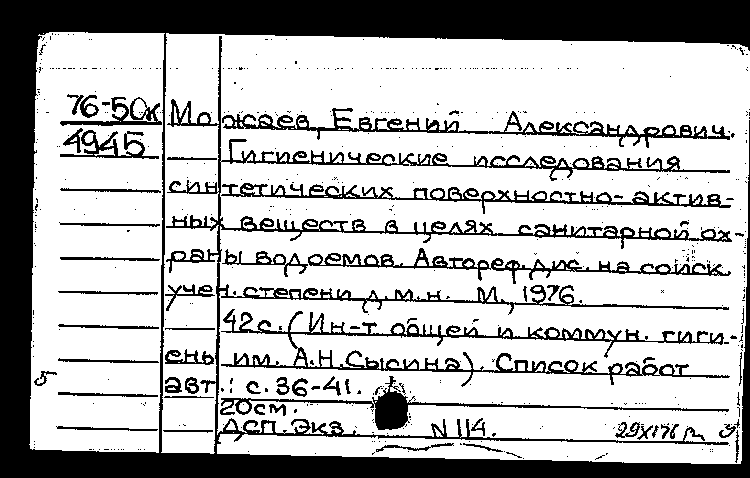 76-50к Можаев, Евгений Александрович.
4945 Гигиенические исследования
синтетических поверхностно-актив-
ных веществ в целях санитарной ох-
раны водоемов. Автореф. дис. на соиск.
учен. степени д.м.н. М., 1976.
42 с. (Ин-т общей и коммун. гиги-
ены им. А.Н.Сысина). Список работ
5 авт.: с. 36-41.
20см.
ДСП. Экз. N 114.